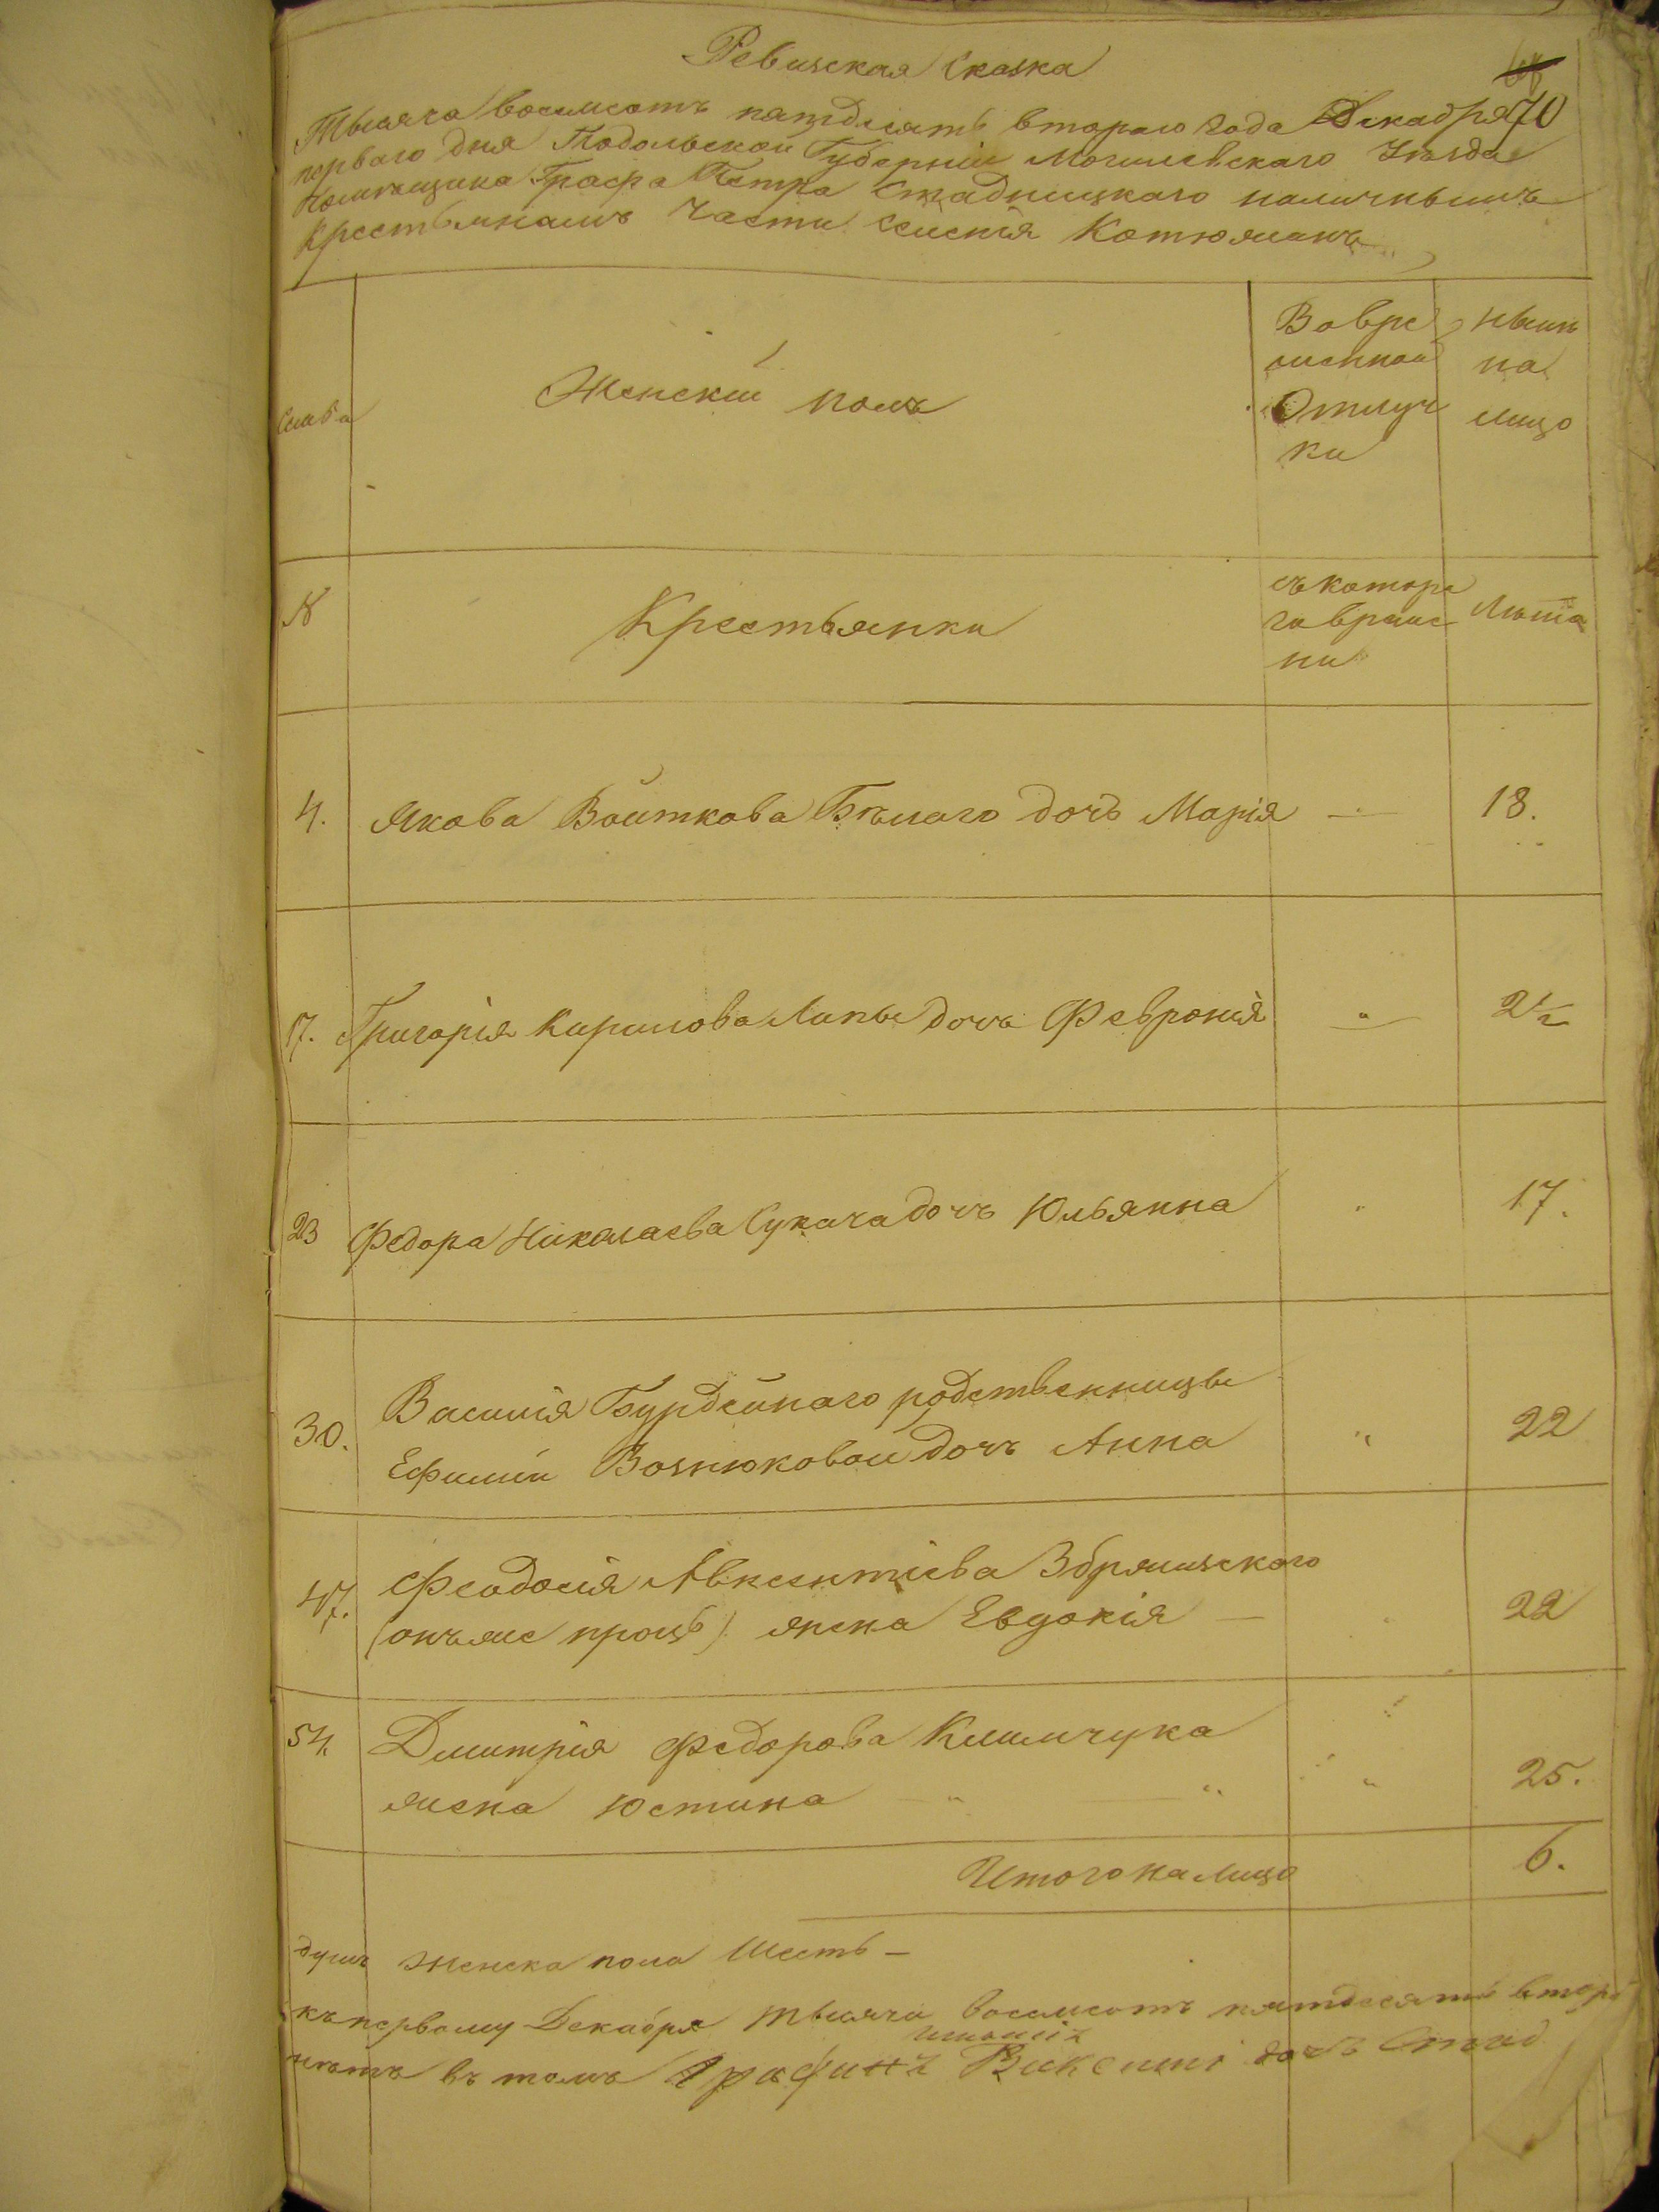 Ревизская Сказка
70
Тысяча восемсотъ пятдесятъ втораго Года Декабря
перваго дня Подольской Губерніи Могилевскаго Уѣзда
Помѣщика Графа Петра Стадницкаго наличнымъ
Крестьянамъ Части Селенія Котюжанъ
Семьи
Женскій полъ
Вовре
менной
Отлуч
ки
Нынѣ
на
лицо
№
Крестьянки
съ которо
го време
ни
Лѣта
4. Якова Войткова Бѣлаго дочь Марія — 18.
17. Григорія Кирилова Липы дочь Февронія " 2½
23 Федора Николаева Сукача дочь Юльянна " 17.
30. Василія Бурдейнаго родственницы
Ефиміи Вознюковой дочь Анна " 22
47. Феодосія Авксентіева Збрямискаго
(онъже проць) жена Евдокія — " 22
54. Дмитрія Федорова Климчука
жена Юстина " " " 25.
Итого на лицо 6.
душъ женска пола Шесть —
къ первому Декабря тысяча восемсотъ пятдесятъ
въ томъ имѣніи Графинѣ